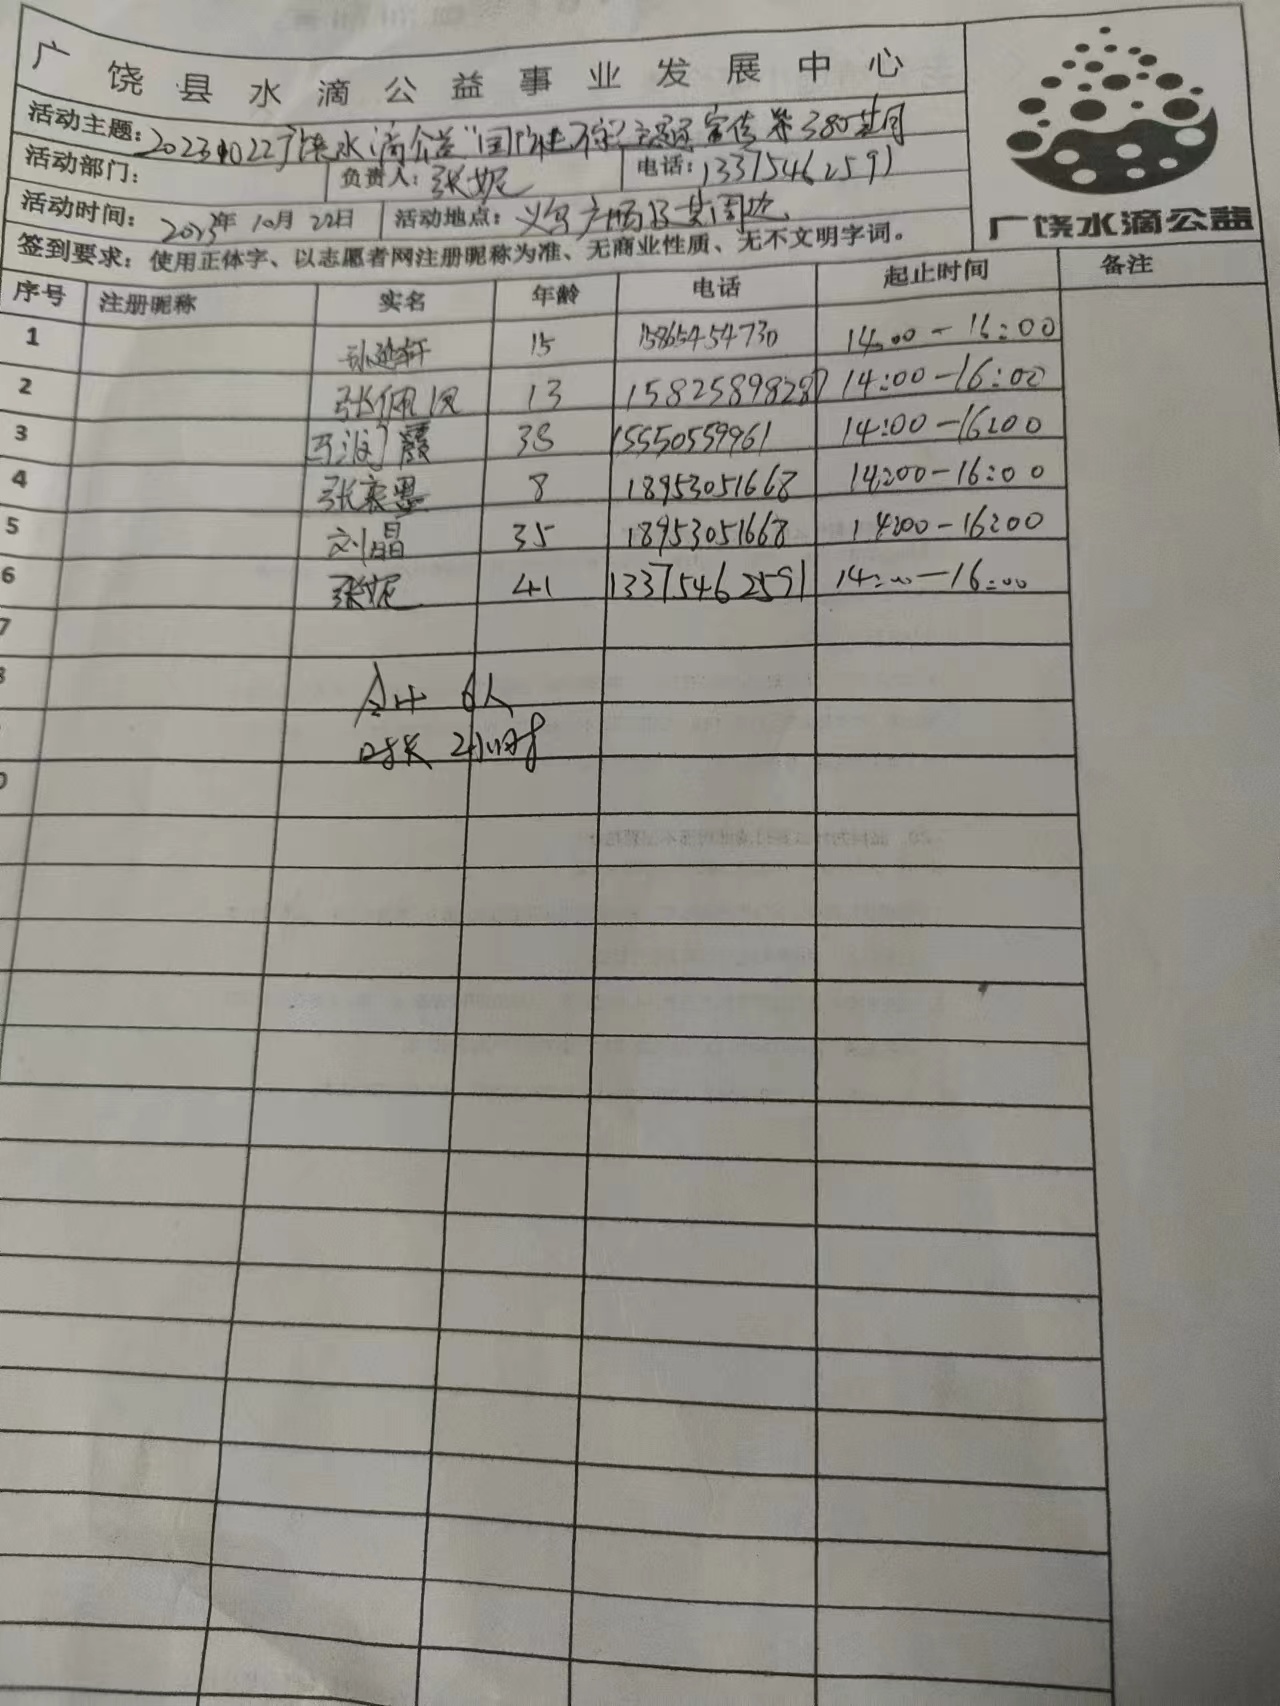 广饶县水滴公益事业发展中心
活动主题：20231022广饶水滴公益"国际 不 主题宣传第380期
活动部门： 负责人：张妮 电话：13375462591
活动时间：2023年10月22日 活动地点：义乌广场及其周边
签到要求：使用正体字、以志愿者网注册昵称为准、无商业性质、无不文明字词。
广饶水滴公益
序号 注册昵称 实名 年龄 电话 起止时间 备注
1 轩 15 15865454730 14:00-16:00
2 张佩 13 15825898287 14:00-16:00
3 马 霞 38 15550559961 14:00-16:00
4 张 墨 8 18953051668 14:00-16:00
5 刘晶 35 18953051668 14:00-16:00
6 张妮 41 13375462591 14:00-16:00
7
合计 6人
时长 2小时